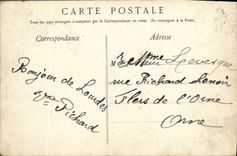 CARTE POSTALE
Tous les pays étrangers n'acceptent pas la Correspondance au recto. (Se renseigner à la Poste)
Correspondance
Adresse
Bonjour de Lourdes
Vve Pichard
Levesque
rue Richard Lenoir
Flers de l'Orne
Orne